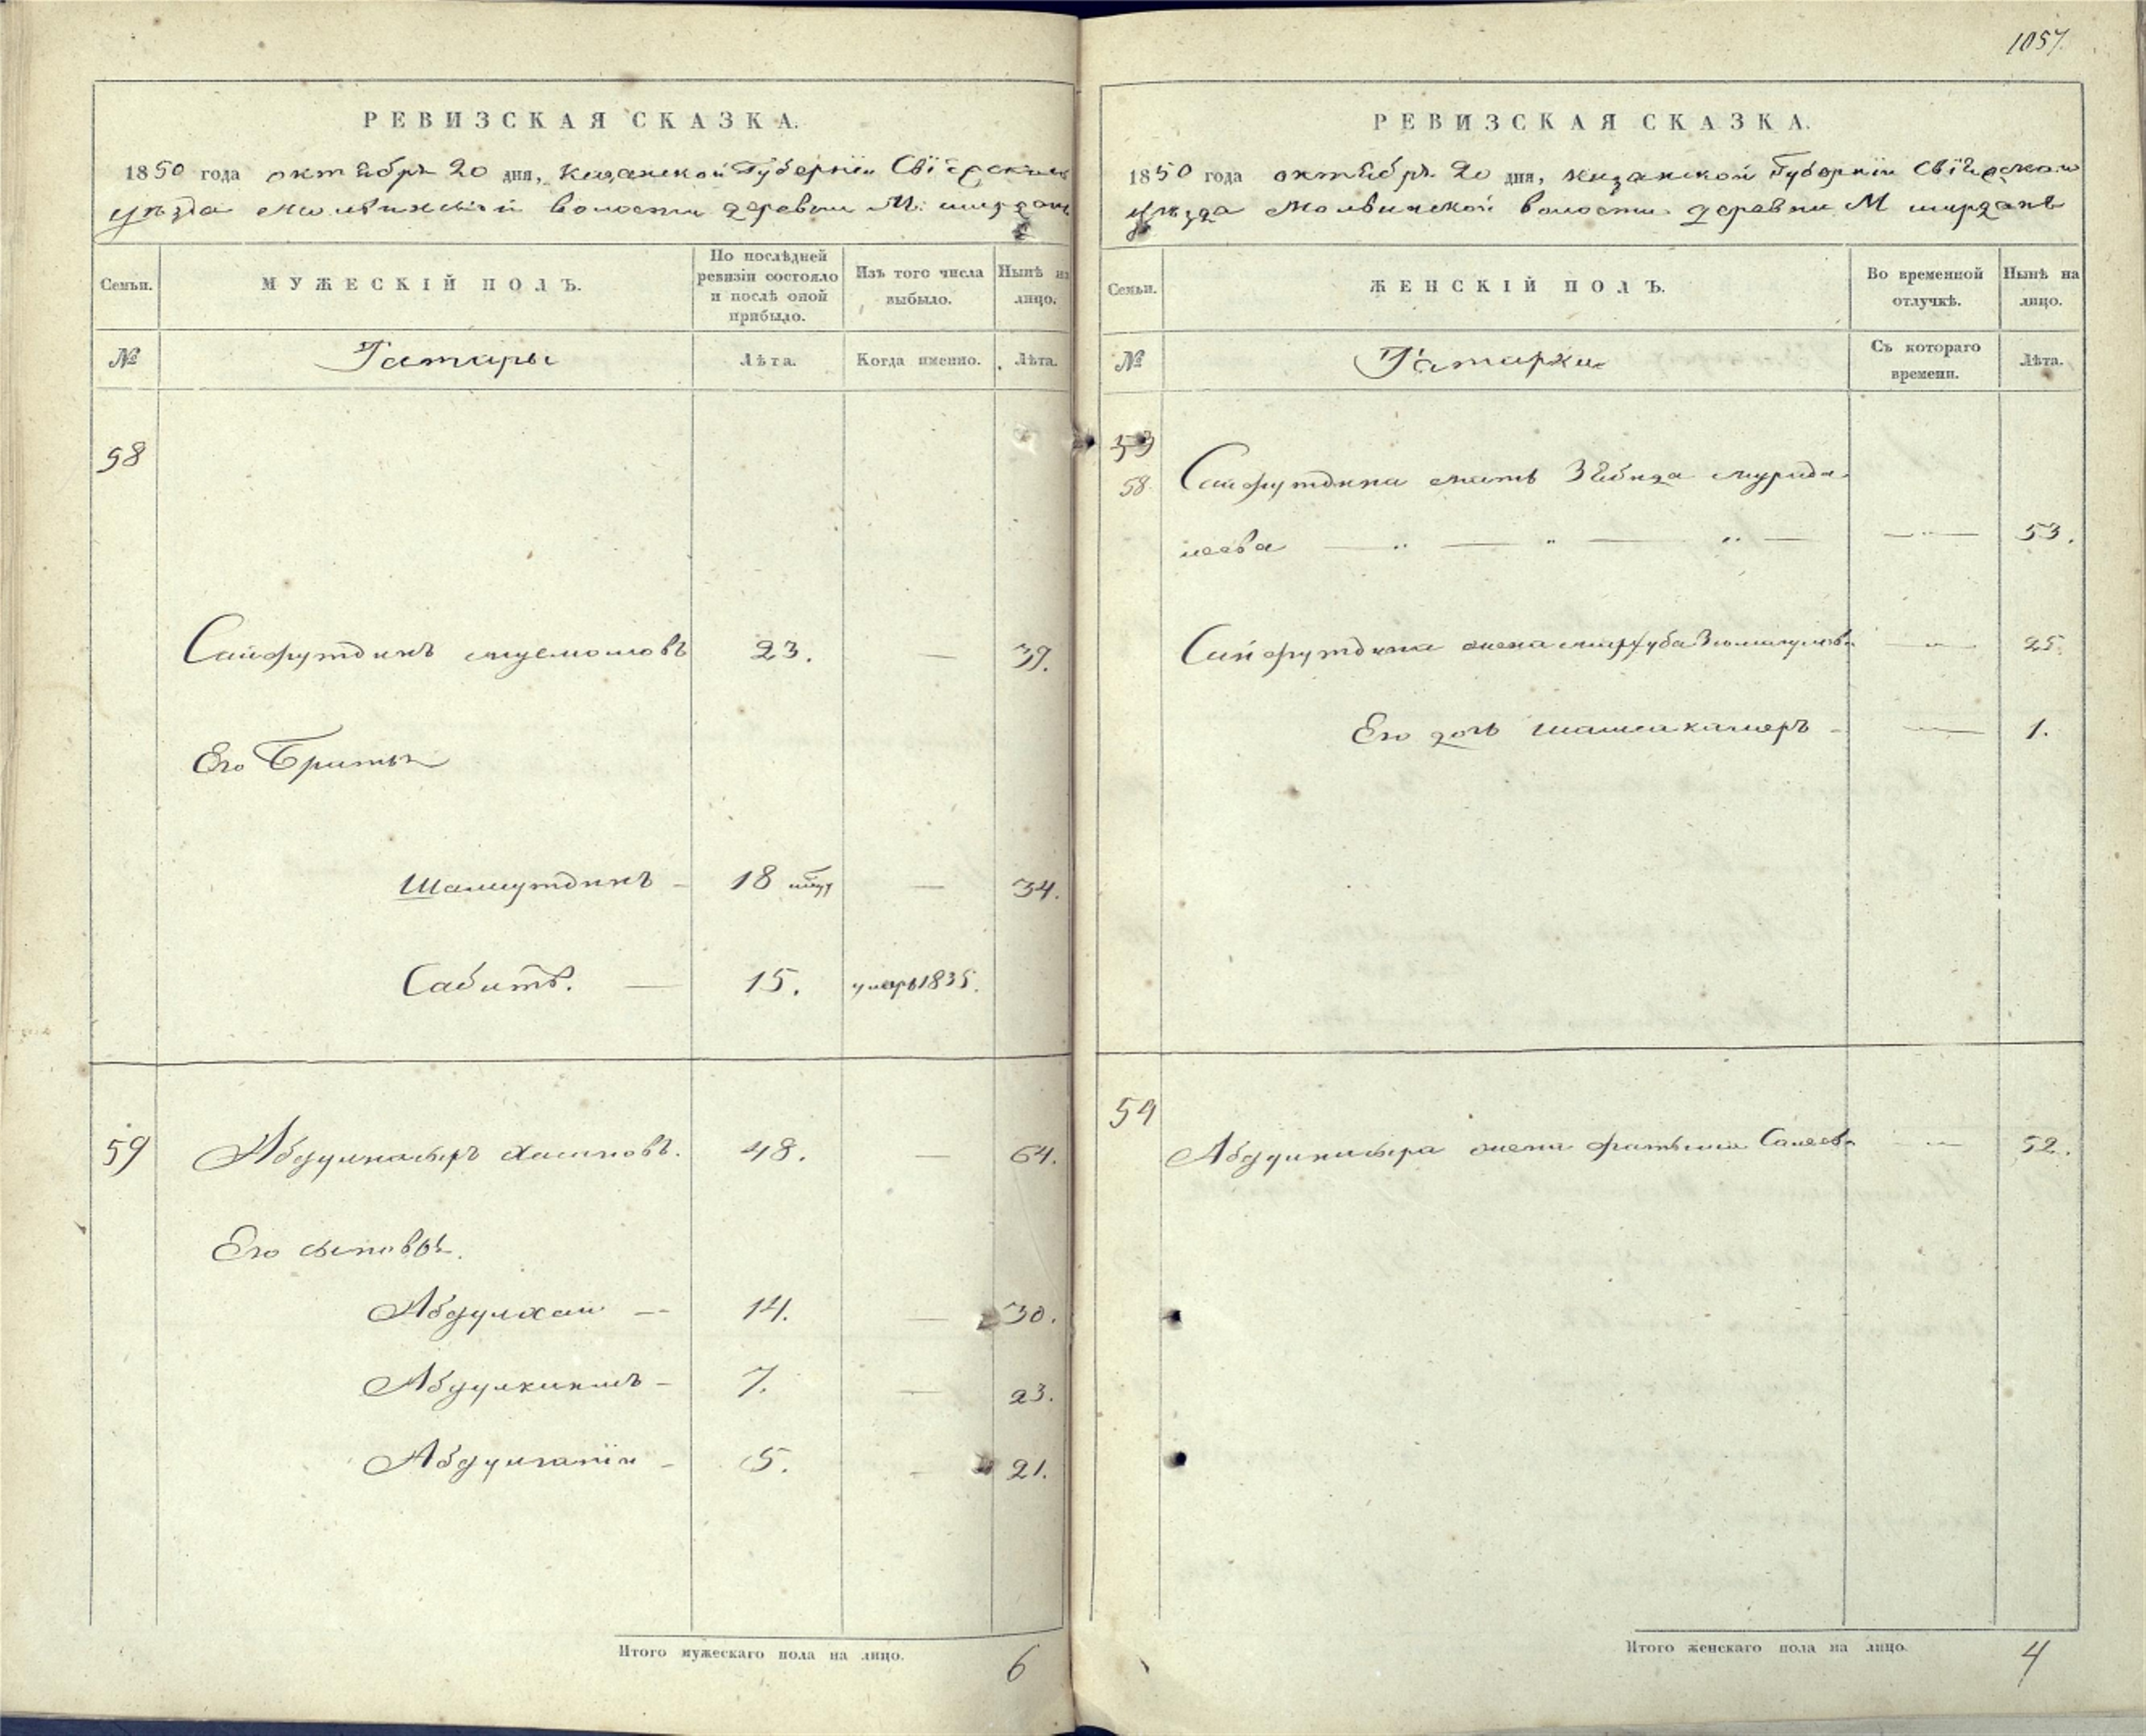 1057.
РЕВИЗСКАЯ СКАЗКА.
1850 года октября 20 дня, Казанской Губернiи Свiяжскаго
уѣзда Молвинской волости деревни М: ширданъ
Семьи.
МУЖЕСКIЙ ПОЛЪ.
По послѣдней ревизiи состояло и послѣ оной прибыло.
Изъ того числа выбыло.
Нынѣ на лицо.
№
Татары
Лѣта.
Когда именно.
Лѣта.
58
Сайфутдинъ 23. — 39.
Его Братья
Шамсутдинъ — 18 — 34.
Сабитъ. — 15. умеръ 1835.
59 Абдулнасыръ Хасановъ. 48. — 64.
Его сыновья.
Абдулхаи — 14. — 30.
Абдулкиимъ — 7. — 23.
Абдулганiи — 5. — 21.
Итого мужескаго пола на лицо. 6
РЕВИЗСКАЯ СКАЗКА.
1850 года октября 20 дня, Казанской Губернiи Свiяжскаго
уѣзда Молвинской волости деревни М ширданъ
Семьи.
ЖЕНСКIЙ ПОЛЪ.
Во временной отлучкѣ.
Нынѣ на лицо.
№
Татарки
Съ котораго времени.
Лѣта.
58 Сайфутдина мать Зябида
— „ — „ — „ — — „ — 53.
Сайфутдина жена — „ — 25.
Его дочь Шамсикамеръ — — 1.
59
Абдулнасыра жена Фатыма Салеева — „ — 52.
Итого женскаго пола на лицо. 4